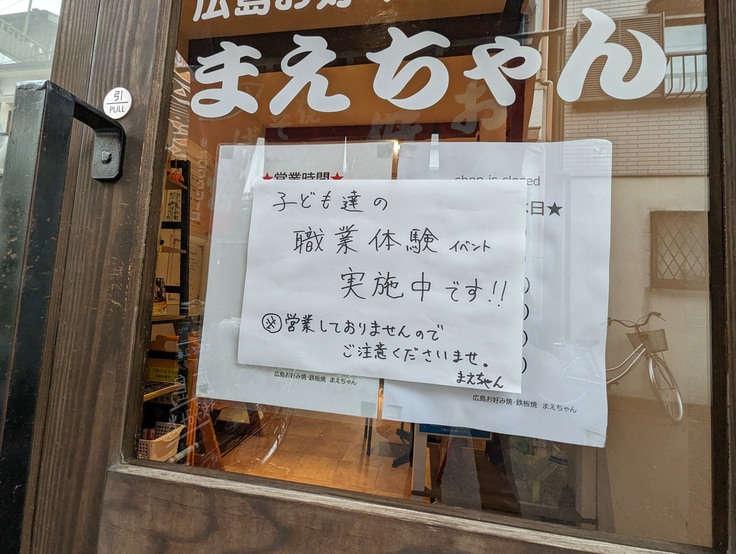 広島お好
まえちゃん
引
PULL
★営業時間★
shop is closed
日★
子ども達の
職業体験 イベント
実施中です!!
※営業しておりませんので
ご注意くださいませ。
まえちゃん
広島お好み焼・鉄板焼 まえちゃん
広島お好み焼・鉄板焼 まえちゃん